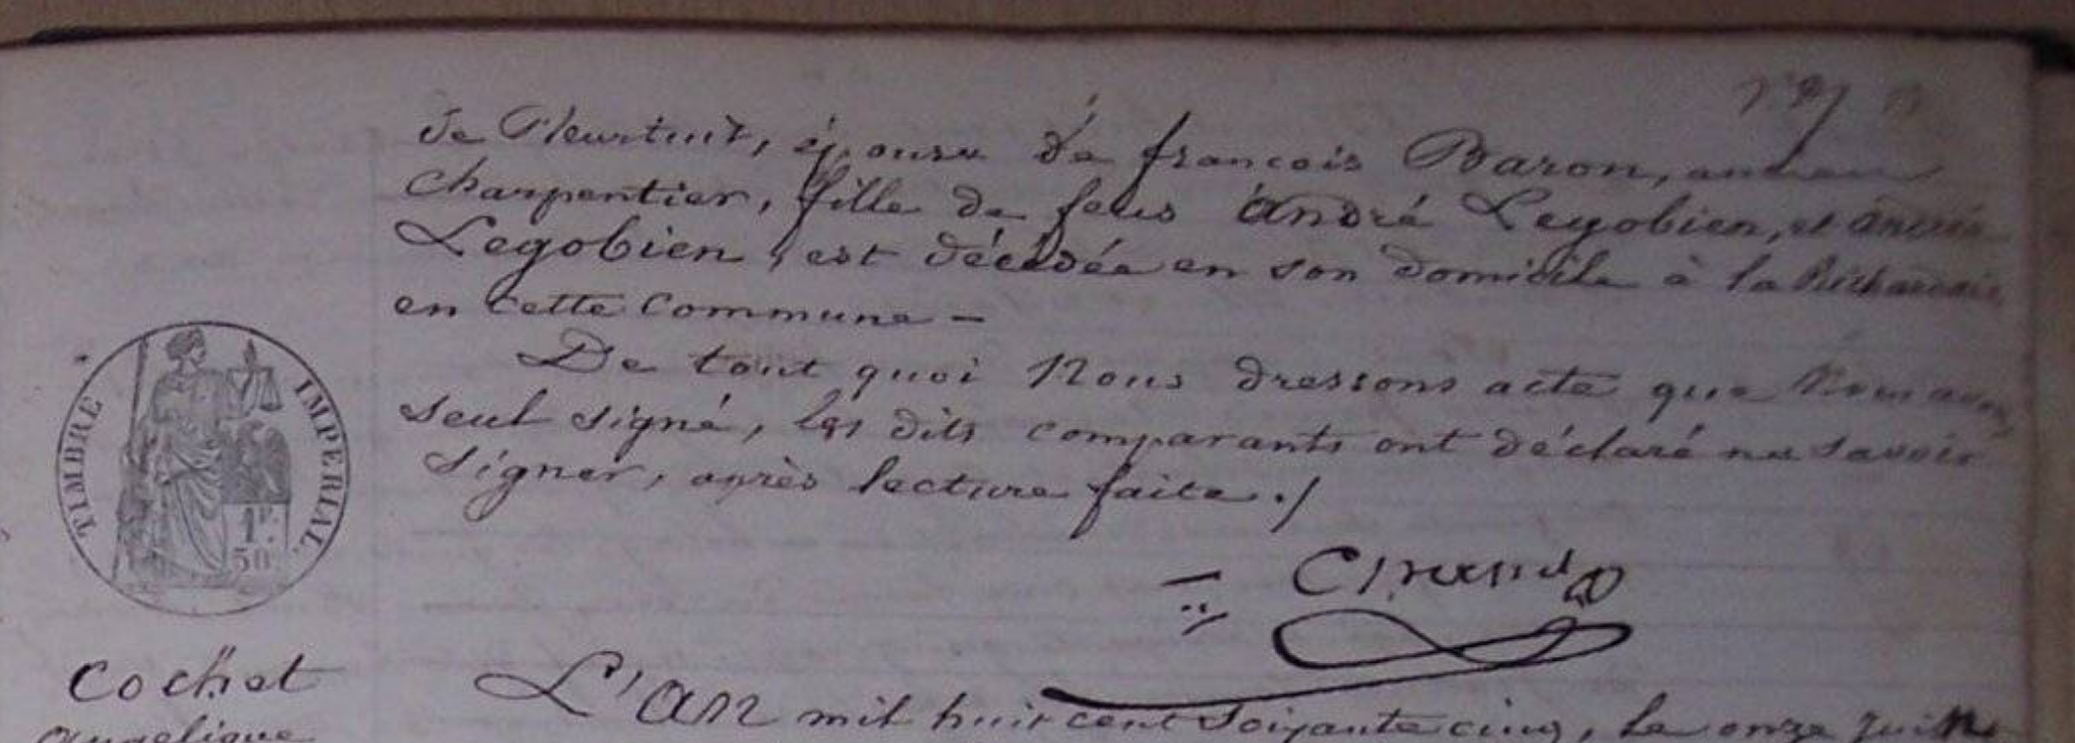 de Pleurtuit, épouse de françois Baron, ancien
Charpentier, fille de feus André Legobien, et
Legobien, est décédée en son domicile à la Richardais
en cette Commune -
De tout quoi Nous dressons acte que Nous avons
seul signé, les dits comparants ont déclaré ne savoir
signer, après lecture faite ./
TIMBRE IMPERIAL
1F.
50
Cochet
angelique
L'An mil huit cent soixante cinq, le onze juillet